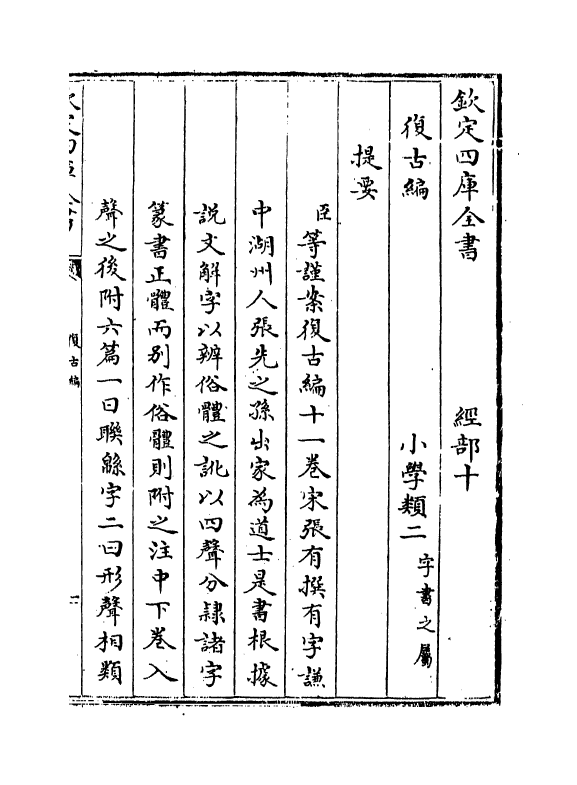 欽定四庫全書　經部十
復古編　小學類二字書之屬
提要
臣等謹案復古編十一卷宋張有撰有字謙
中湖州人張先之孫出家為道士是書根據
說文解字以辨俗體之訛以四聲分隷諸字
篆書正體而别作俗體則附之注中下卷入
聲之後附六篇一曰聯緜字二曰形聲相類
復古編